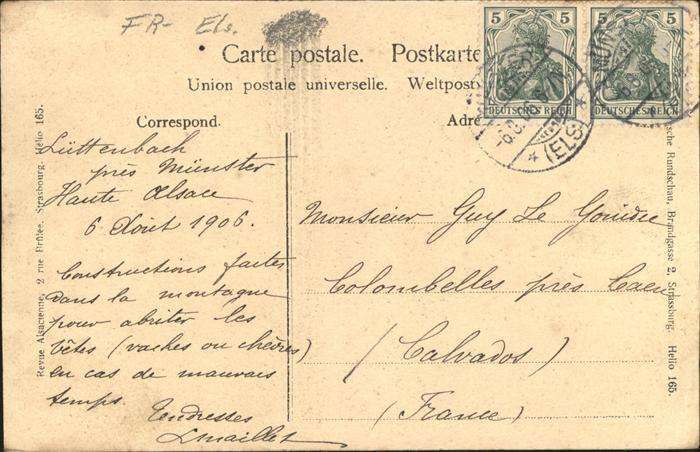 FR- Els.
Carte postale. Postkarte
Union postale universelle. Weltpost
5 5
5 5
DEUTSCHES REICH
DEUTSCHES REICH
(ELS)
Correspond.
Adre
Lüttenbach
près Münster
Haute Alsace
6 Août 1906.
Constructions faites
dans la montagne
pour abriter les
bêtes (vaches ou chèvres)
en cas de mauvais
temps.
Tendresses
LMaillet
Monsieur Guy Le Gouidre
Colombelles près Caen
(Calvados)
(France)
Revue Alsacienne, 2 rue Brûlée, Strasbourg. Hélio 165.
sche Rundschau, Brandgasse 2, Strassburg. Helio 165.